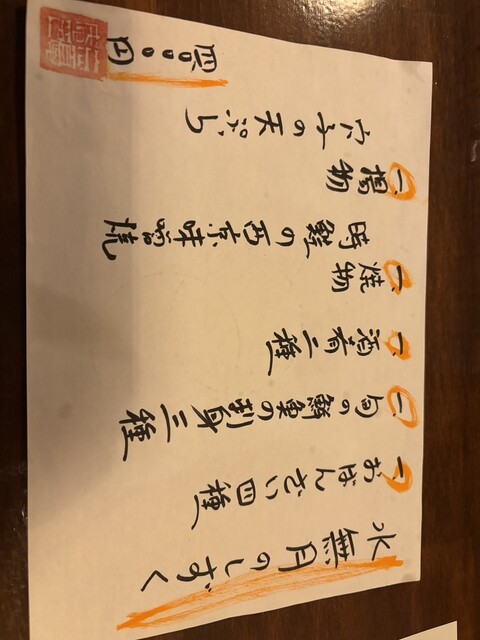 水無月のしずく
一、おばんざい四種
一、旬の鮮魚の割身三種
一、酒肴二種
一、焼物
時鮭の西京味噌焼
一、揚物
穴子の天ぷら
四〇〇〇円